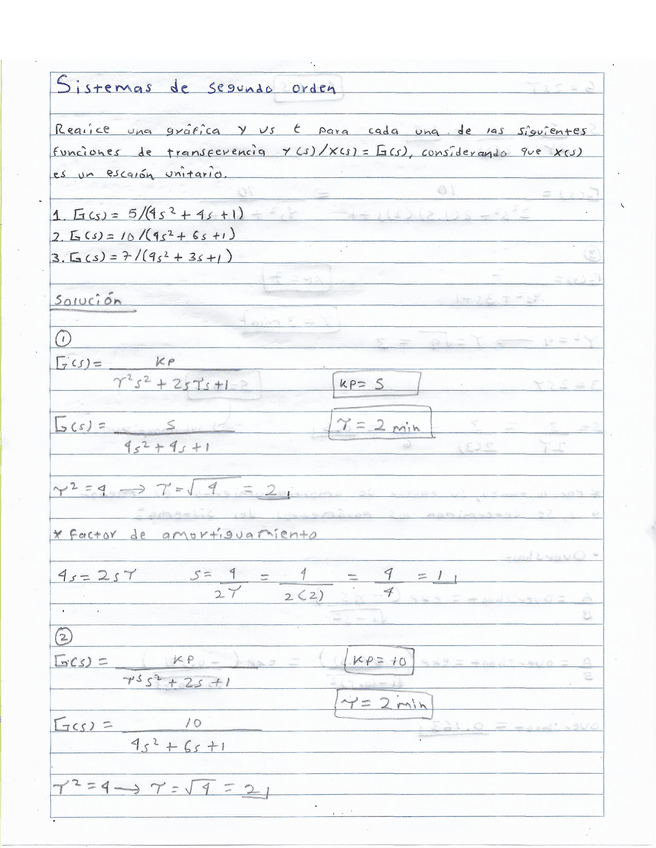 Sistemas de segundo orden
Realice una gráfica y vs t para cada una de las siguientes
funciones de transferencia Y(s)/X(s) = G(s), considerando que X(s)
es un escalón unitario.
1. G(s) = 5/(4s² + 4s + 1)
2. G(s) = 10/(4s² + 6s + 1)
3. G(s) = 7/(9s² + 3s + 1)
Solución
①
G(s) = KP / τ²s² + 2sτs + 1
KP = 5
G(s) = 5 / 4s² + 4s + 1
τ = 2 min
τ² = 4 → τ = √4 = 2
* Factor de amortiguamiento
4s = 2sτ s = 4/2τ = 4/2(2) = 4/4 = 1
②
G(s) = KP / τ³s² + 2s + 1
KP = 10
τ = 2 min
G(s) = 10 / 4s² + 6s + 1
τ² = 4 → τ = √4 = 2